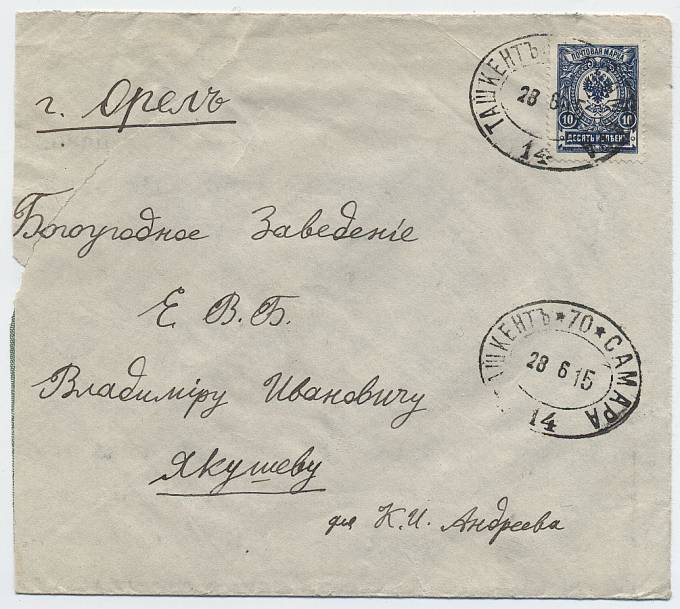 г. Орелъ
Богоугодное Заведеніе
Е. В. Б.
Владиміру Ивановичу
Якушеву
для К. И. Андреева
ПОЧТОВАЯ МАРКА
10 10
ДЕСЯТЬ КОПѢЕКЪ
ТАШКЕНТЪ
28 6
14
ТАШКЕНТЪ * 70 * САМАРА
28 6 15
14